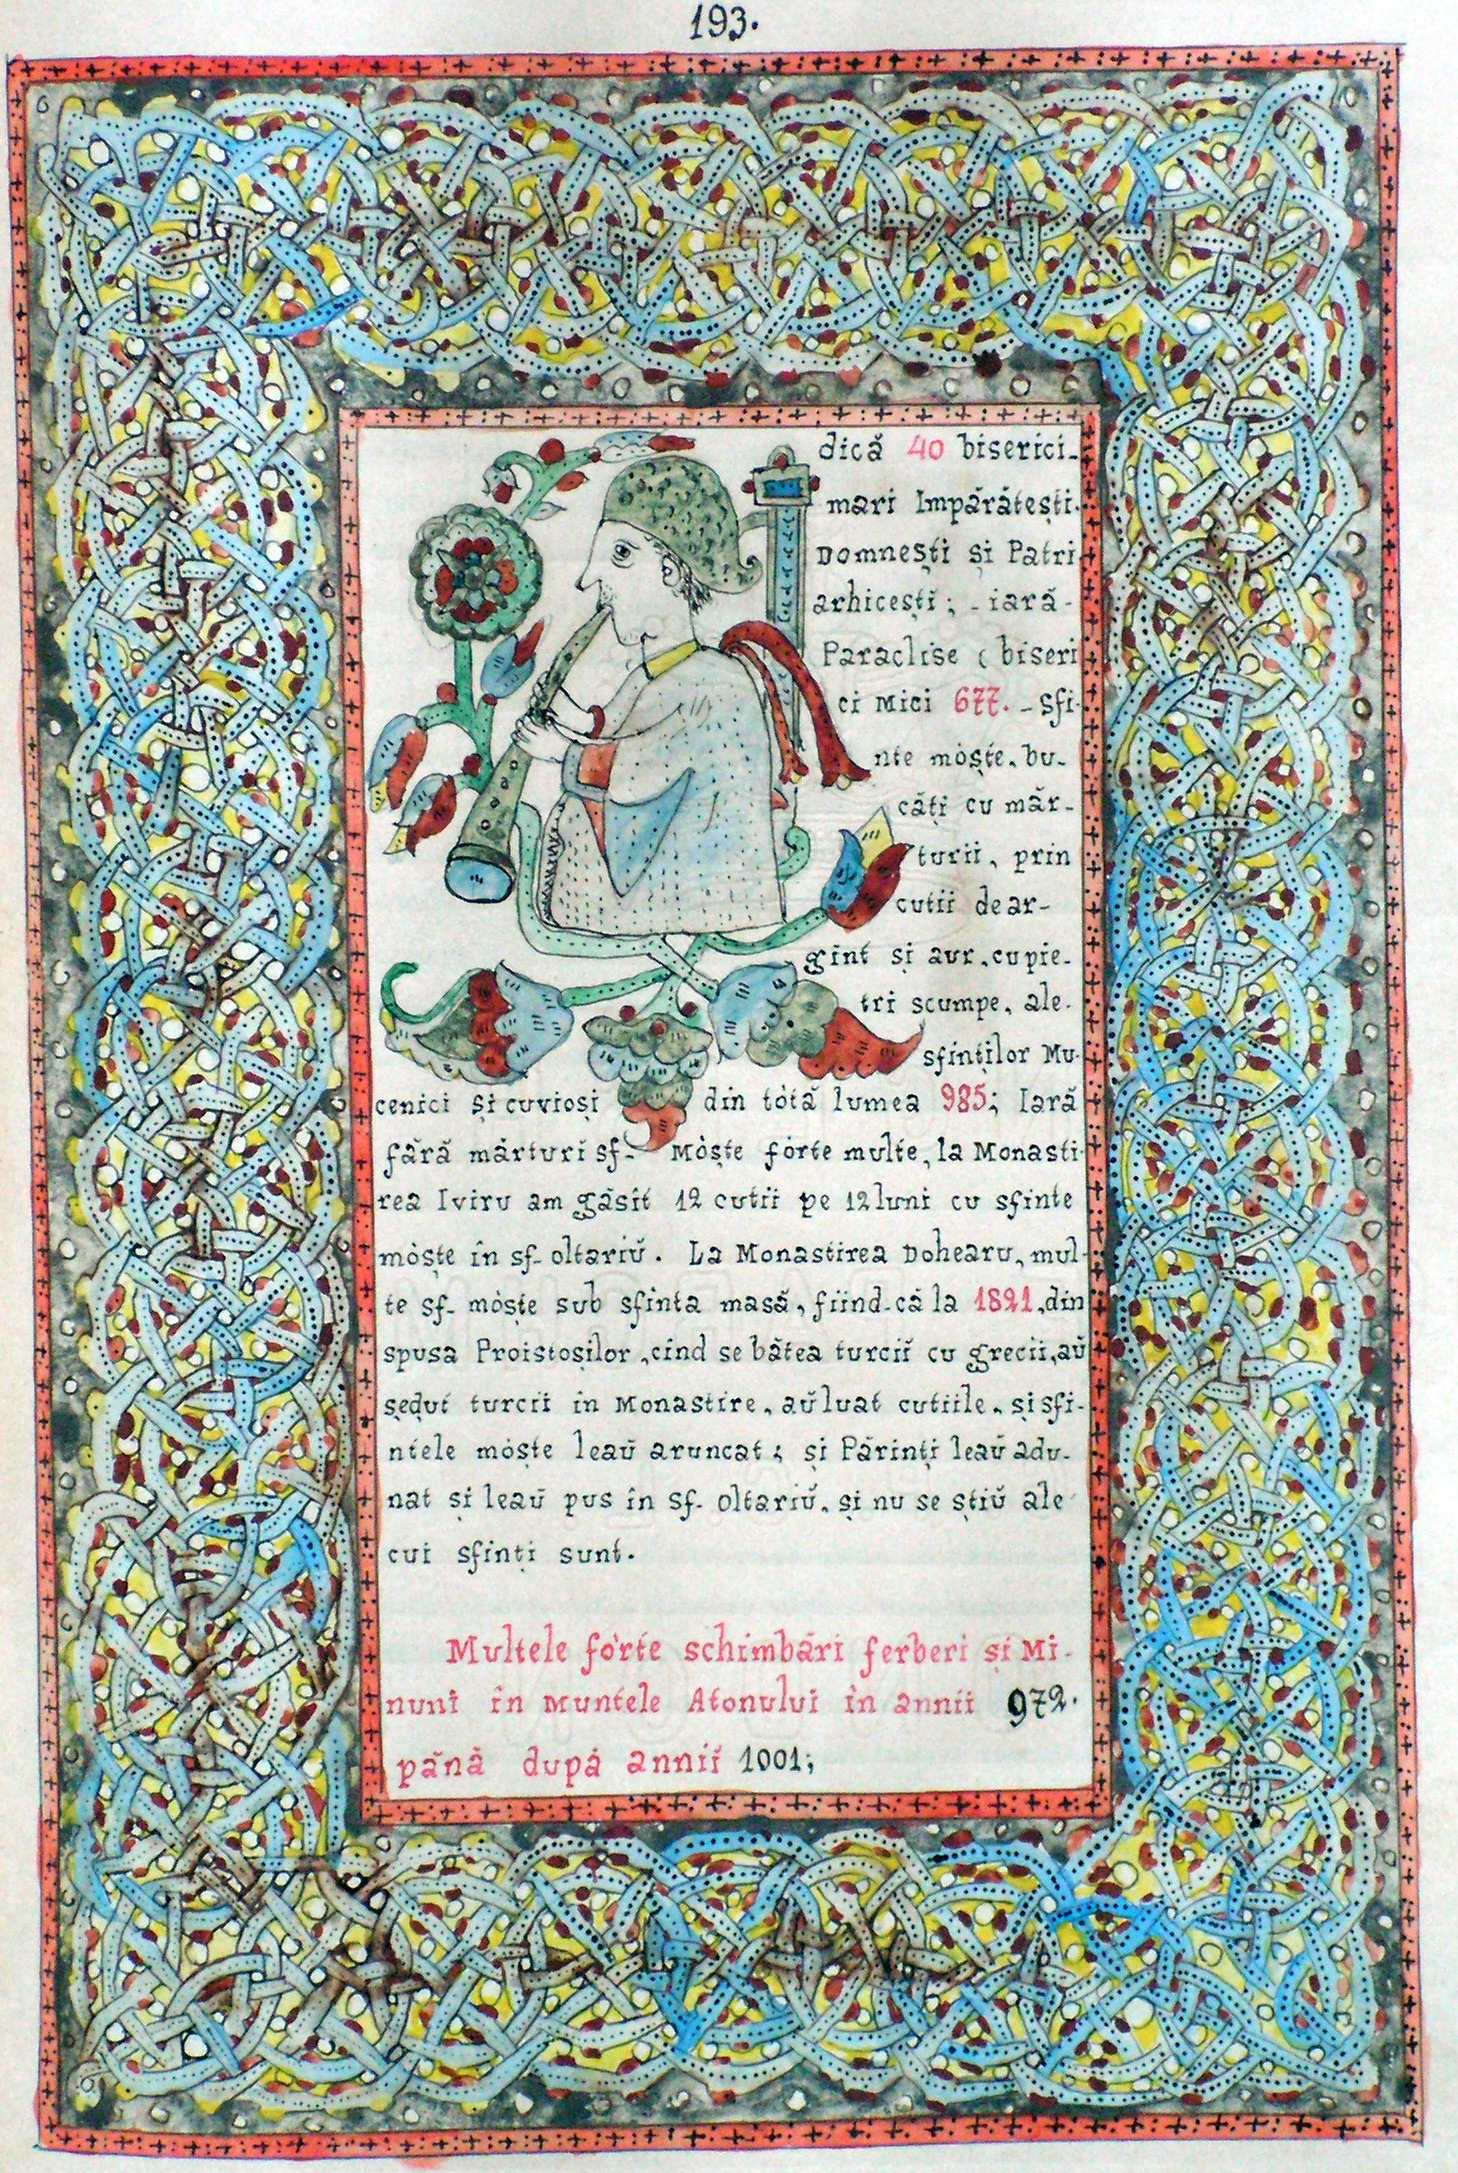 193.
dică 40 biserici
mari Impărătești.
Domnești și Patri
arhicești; - iară-
Paraclise ( biseri
ci Mici 677. - Sfi-
nte mòște, bu-
căți cu măr-
turii, prin
cutii de ar-
gint și aur, cu pie-
tri scumpe, ale
sfinților Mu-
cenici și cuvioși din tòtă lumea 985; Iară
fără mărturi sf- Mòște fòrte multe, la Monasti-
rea Iviru am găsit 12 cutii pe 12 luni cu sfinte
mòște în sf- oltariŭ. La Monastirea Dohearu, mul-
te sf- mòște sub sfinta masă, fiind-că la 1821, din
spusa Proistosilor, cind se bătea turciĭ cu grecii, aŭ
ședuť turcii in Monastire, aŭ luat cutiile, și sfi-
ntele mòște leaŭ aruncat; și Părinți leaŭ adu-
nat și leaŭ pus în sf- oltariŭ, și nu se știŭ ale
cui sfinți sunt.
Multele fòrte schimbări ferberi și Mi-
nuni în Muntele Atonului in annii 972.
pănă după annii 1001;